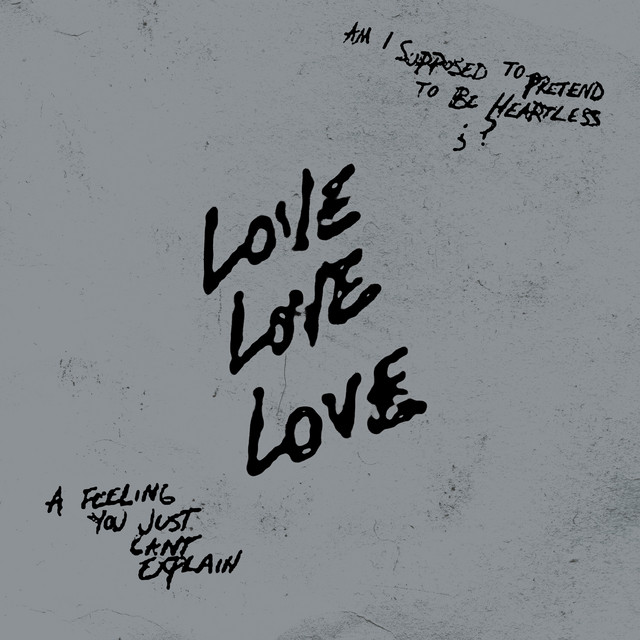 AM I SUPPOSED TO PRETEND
TO BE HEARTLESS
;?
LOVE
LOVE
LOVE
A FEELING
YOU JUST
CANT
EXPLAIN